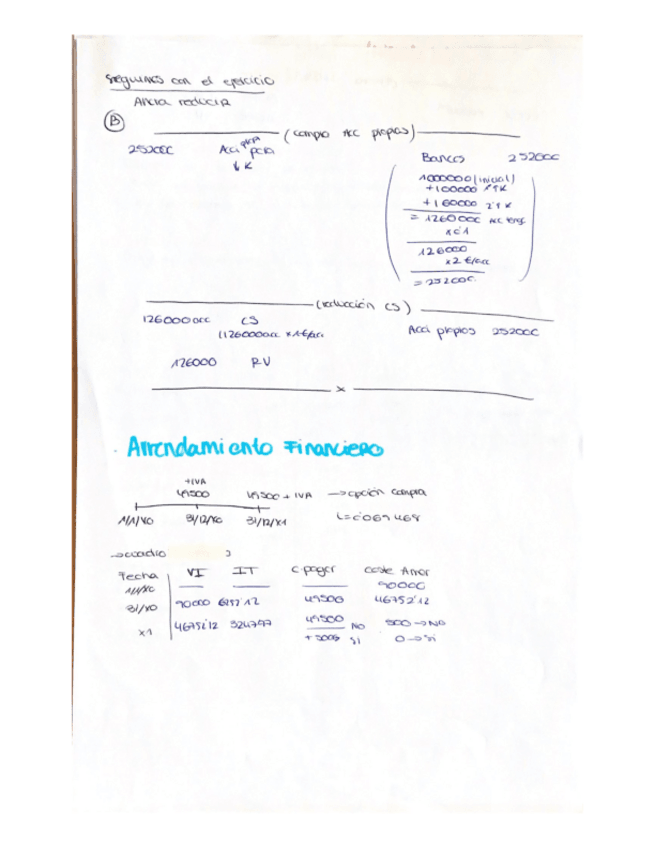 Seguimos con el ejercicio
Ahora reducir
B
(compra Acc propias)
252000 Acci propia para
↓ K
Bancos 252000
1000000 (inicial)
+100000 1ª K
+160000 2ª K
= 1260000 acc tengo
x 0'1
126000
x2 €/acc
= 252000
(reducción CS)
126000 acc CS
(126000acc x1€/acc
Acci propias 252000
126000 RV
x
Arrendamiento Financiero
+IVA
49500 49500 + IVA → opción compra
1/1/X0 31/12/X0 31/12/X1 i=0'069468
→ cuadro
Fecha VI IT C pagar Coste Amor
1/1/X0 — — — 90000
31/X0 90000 6252'12 49500 46752'12
X1 46752'12 3247'97 49500 NO 500 → NO
+500 SI 0 → Si